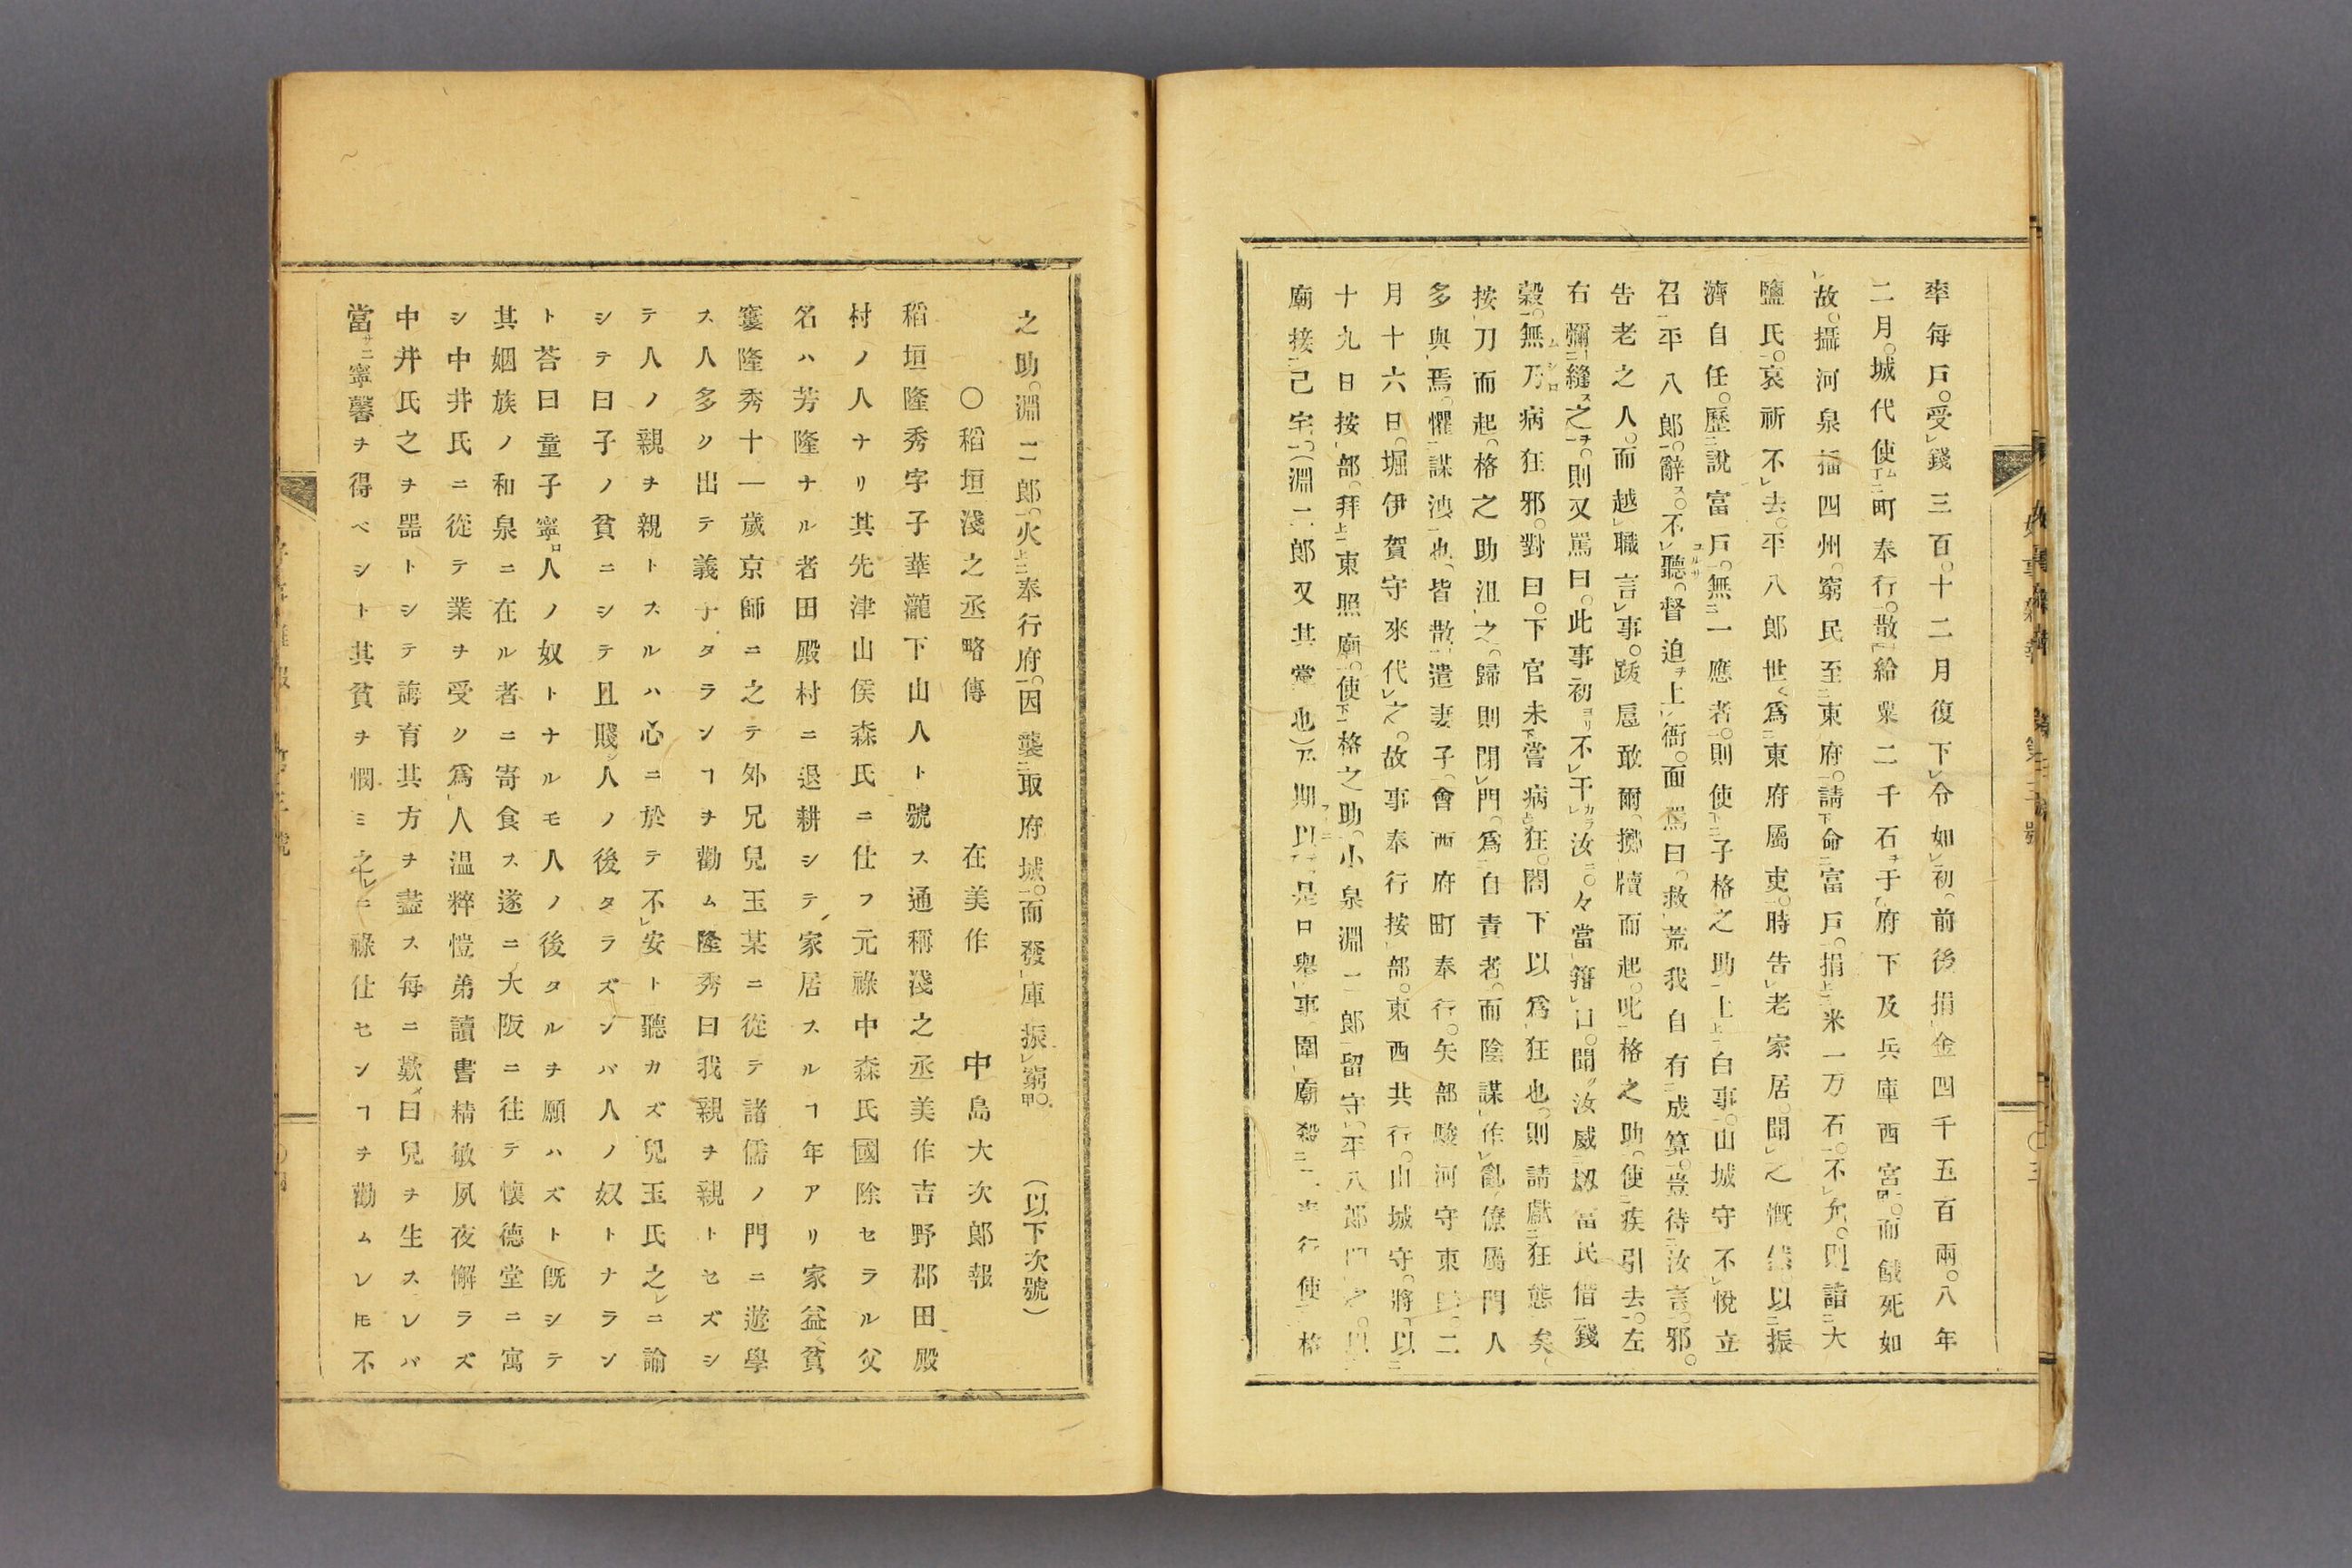 率每戶。受錢三百。十二月復下令如初。前後捐金四千五百兩。八年
二月。城代使町奉行。散給粟二千石于府下及兵庫西宮。而餓死如
故。攝河泉播四州。窮民至東府。請命富戶。捐米一万石。不允。則請大
鹽氏。哀祈不去。平八郎世々爲東府屬吏。時告老家居。聞之慨然。以振
濟自任。歷說富戶。無一應者。則使子格之助上白事。山城守不悅立
召平八郎。辭ス。不聽。督迫上衙。面罵曰。救荒我自有成算。豈待汝言。邪。
告老之人。而越職言事。跋扈敢爾。擲牘而起。叱格之助。使疾引去。左
右彌縫之。則又罵曰。此事初不干汝。々當箝口。聞汝威劫富民借錢
穀。無乃病狂邪。對曰。下官未嘗病狂。閤下以爲狂也。則請獻狂態矣。
按刀而起。格之助沮之。歸則閉門。爲自責者。而陰謀作亂。僚屬門人
多與焉。懼謀洩也、皆散遣妻子。會西府町奉行。矢部駿河守東 。二
月十六日。堀伊賀守來代之。故事奉行按部。東西共行。山城守。將以
十九日按部。拜東照廟。使格之助。小泉淵二郎留守。平八郎門
廟接己宅。(淵二郎又其黨也)乃期以是日擧事。圍廟殺二奉行使格
之助。淵二郎。火奉行府。因襲取府城。而發庫振窮甲。(以下次號)
〇稻垣淺之丞略傳 在美作 中島大次郎報
稻垣隆秀字子華瀧下山人ト號ス通稱淺之丞美作吉野郡田殿
村ノ人ナリ其先津山侯森氏ニ仕フ元祿中森氏國除セラル父
名ハ芳隆ナル者田殿村ニ退耕シテ家居スルヿ年アリ家益〻貧
窶隆秀十一歲京師ニ之テ外兄兒玉某ニ從テ諸儒ノ門ニ遊學
ス人多ク出テ義子タランヿヲ勸ム隆秀曰我親ヲ親トセズシ
テ人ノ親ヲ親トスルハ心ニ於テ不安ト聽カズ兒玉氏之ニ諭
シテ曰子ノ貧ニシテ且賤シ人ノ後タラズンバ人ノ奴トナラン
ト荅曰童子寧ロ人ノ奴トナルモ人ノ後タルヲ願ハズト旣シテ
其姻族ノ和泉ニ在ル者ニ寄食ス遂ニ大阪ニ往テ懷德堂ニ寓
シ中井氏ニ從テ業ヲ受ク爲人溫粹愷弟讀書精敏夙夜懈ラズ
中井氏之ヲ器トシテ誨育其方ヲ盡ス每ニ歎メ曰兒ヲ生スレバ
當ニ寧馨ヲ得ベシト其貧ヲ憫ミ之ニ祿仕センヿヲ勸ムレ𪜈不